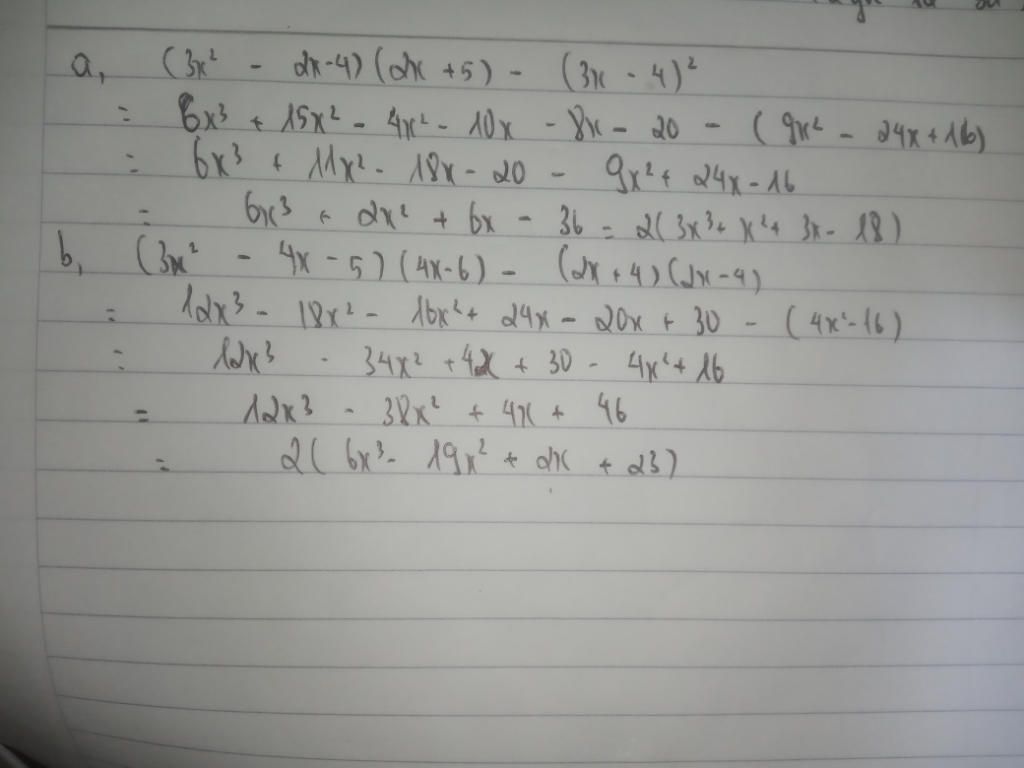 a, (3x² - 2x-4)(2x+5) - (3x - 4)²
= 6x³ + 15x² - 4x² - 10x - 8x - 20 - (9x² - 24x+16)
= 6x³ + 11x² - 18x - 20 - 9x² + 24x - 16
= 6x³ + 2x² + 6x - 36 = 2(3x³+ x²+ 3x - 18)
b, (3x² - 4x - 5)(4x-6) - (2x+4)(2x-4)
= 12x³ - 18x² - 16x²+ 24x - 20x + 30 - (4x²-16)
= 12x³ - 34x² + 4x + 30 - 4x² + 16
= 12x³ - 38x² + 4x + 46
= 2( 6x³ - 19x² + 2x + 23)